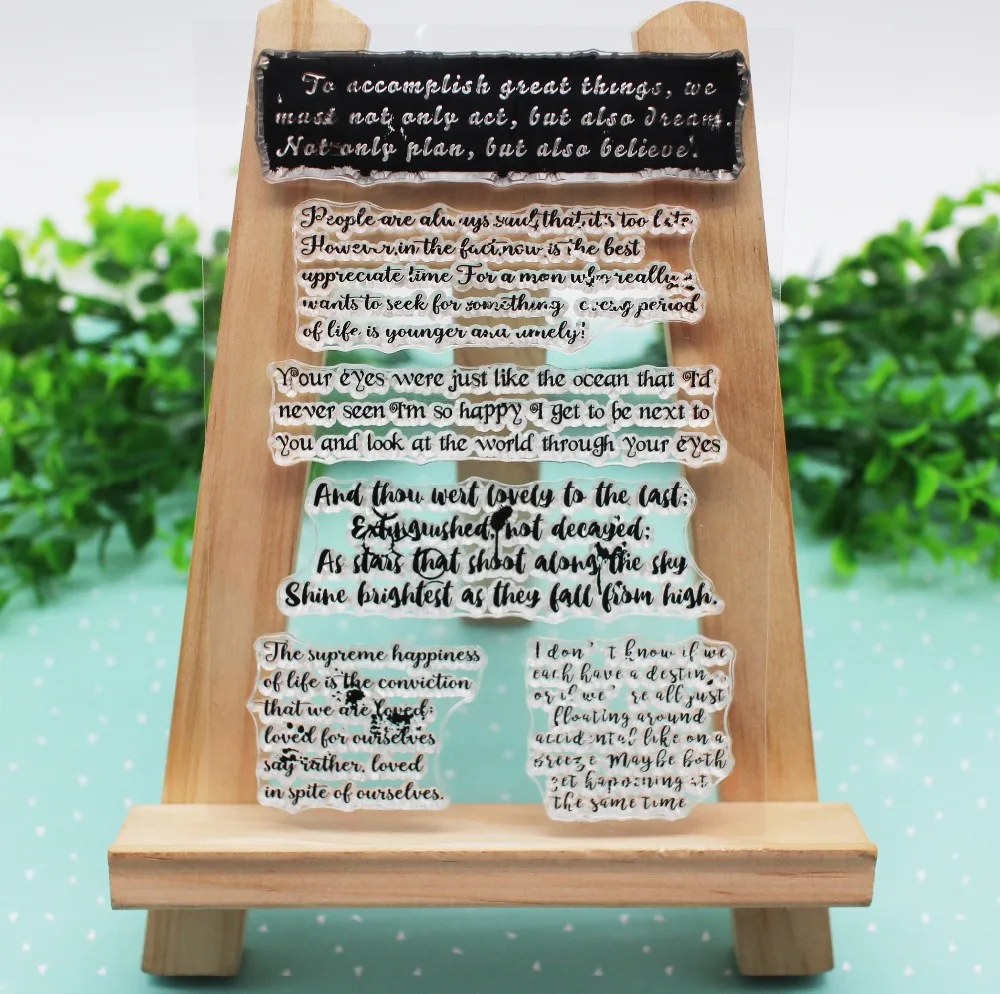 To accomplish great things, we
must not only act, but also dream.
Not only plan, but also believe.
People are always said, that it's too late
However, in the fact, now is the best
appreciate time For a man who really
wants to seek for something every period
of life is younger and timely!
Your eyes were just like the ocean that I'd
never seen I'm so happy I get to be next to
you and look at the world through your eyes
And thou wert lovely to the last;
Extinguished, not decayed;
As stars that shoot along the sky
Shine brightest as they fall from high.
The supreme happiness
of life is the conviction
that we are loved;
loved for ourselves
say rather, loved
in spite of ourselves.
I don't know if we
each have a destin
or if we're all just
floating around
accidental like on a
Breeze Maybe both
get happening at
the same time